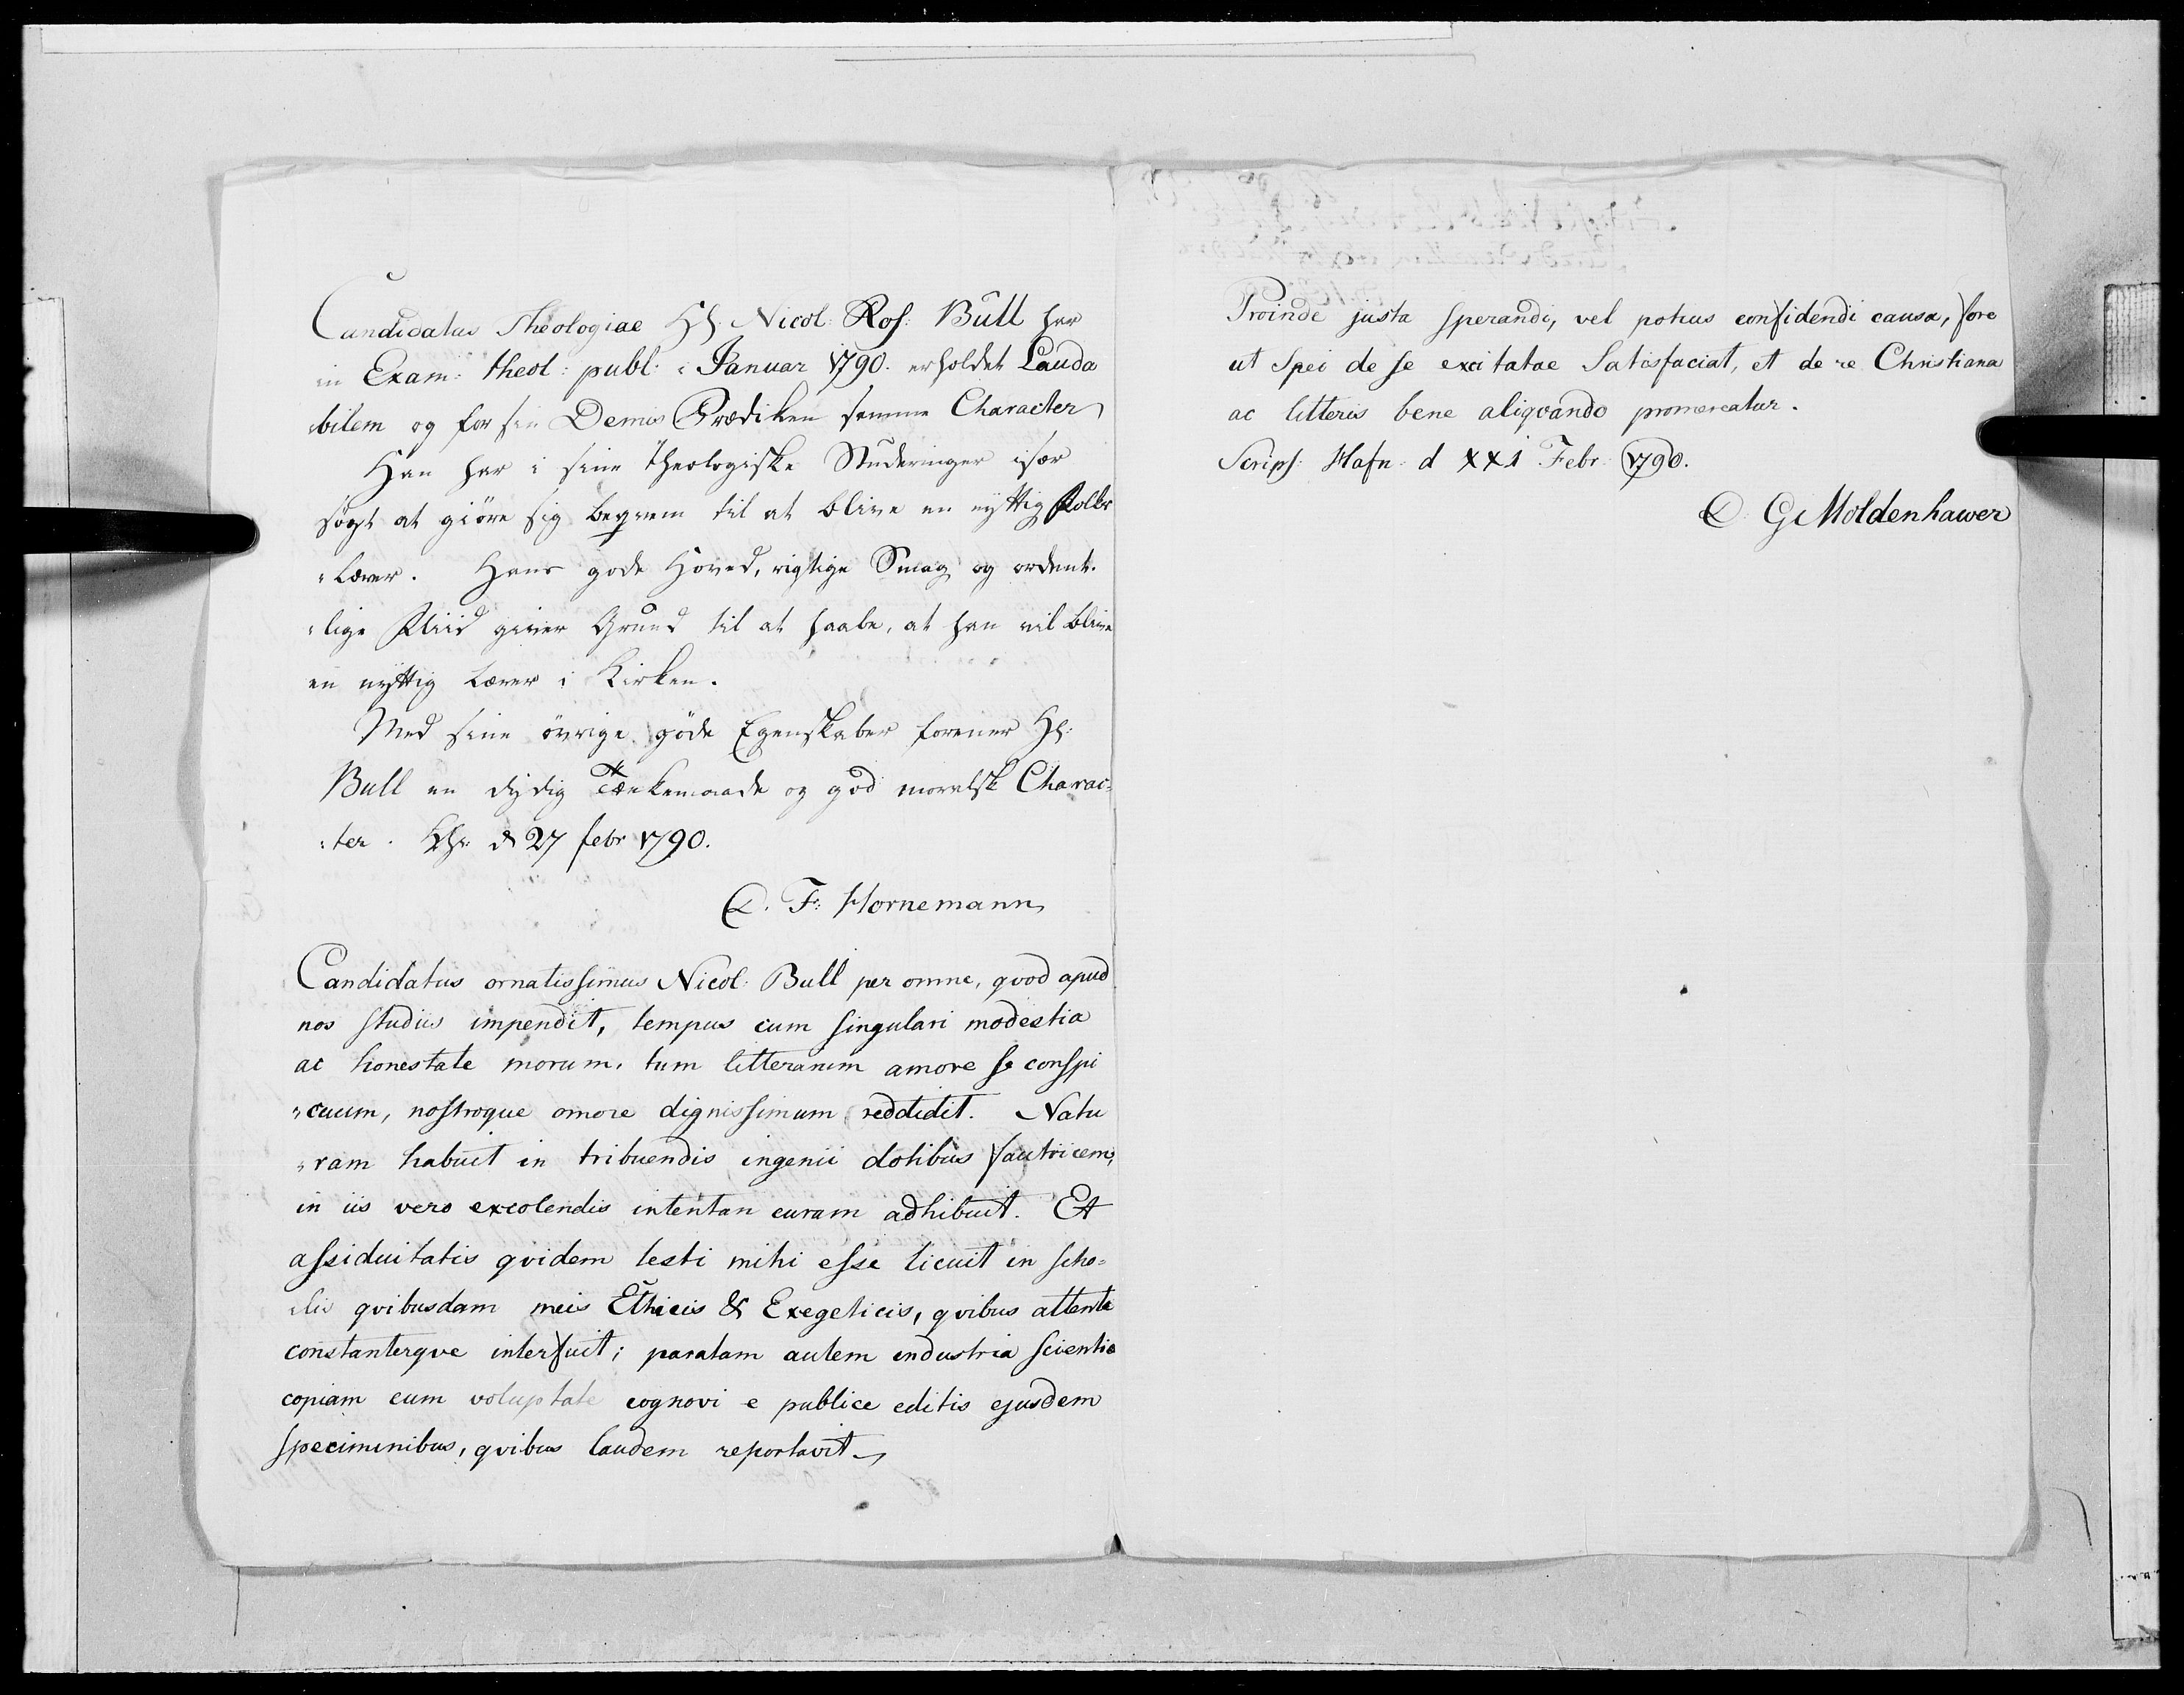 Candidatus Theologiae Hr. Nicol: Rof: Bull har
in Exam: theol: publ: i Januar 1790. erholdet Lauda
bilem og for sin Demis Prædiken samme Character
Han har i sine theologiske Studeringer især
søgt at giöre sig beqvem til at blive en nyttig Folke
-Lærer. Hans gode Hoved, rigtige Smag og ordent-
-lige Fliid giver Grund til at haabe, at han vil blive
en nyttig Lærer i Kirken.
Med sine övrige gode Egenskaber forener Hr:
Bull en dydig Tænkemaade og god moralsk Charac-
-ter. Khr. d 27 febr 1790.
C. F: Hornemann
Candidatus ornatissimus Nicol: Bull per omne, qvod apud
nos studiis impendit, tempus cum singulari modestia
ac honestate morum, tum litterarum amore se conspi
-cuum, nostroque amore dignissimum reddidit. Natu
-ram habuit in tribuendis ingenii dotibus fautricem,
in iis vero excolendis intentan curam adhibuit. Et
assiduitatis qvidem testi mihi esse licuit in scho-
-lis qvibusdam meis Ethicis & Exegeticis, qvibus attente
constanterqve interfuit; paratam autem industria scientiæ
copiam cum voluptate cognovi e publice editis ejusdem
speciminibus, qvibus laudem reportavit
Proinde justa sperandi, vel potius confidendi causa, fore
ut Spei de se excitatae Satisfaciat, et de re Christiana
ac litteris bene aliqvando promereatur.
Scrips: Hafn: d XXI Febr: 1790.
D. G. Moldenhawer